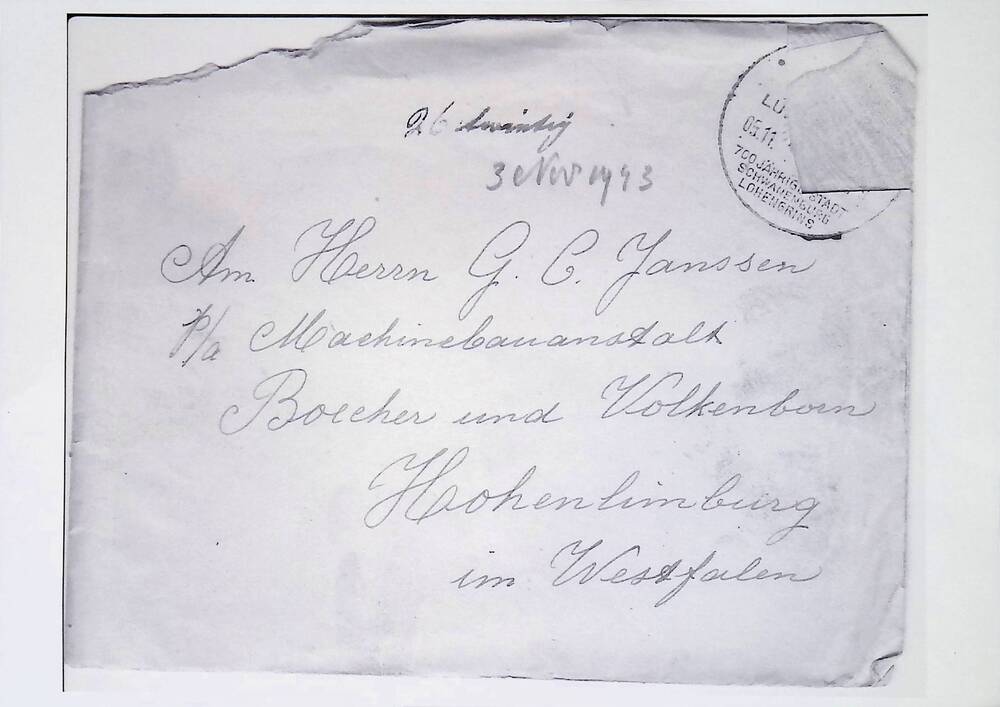 26 twintig
3 Nov 1943
LU
05.11.
700 JÄHRIGE STADT
SCHWANENBURG
LOHENGRINS
Am Herrn G. C. Janssen
p/a Machinebauanstalt
Boecher und Volkenborn
Hohenlimburg
im Westfalen